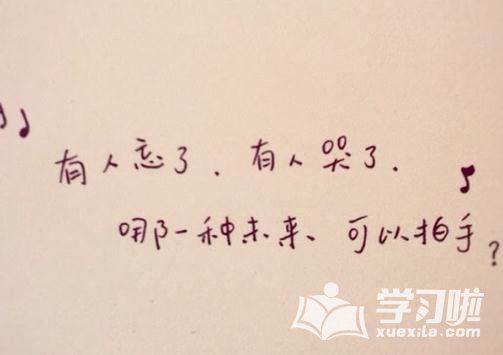 有人忘了．有人哭了．
哪一种未来、可以拍手?
学习啦
xuexila.com